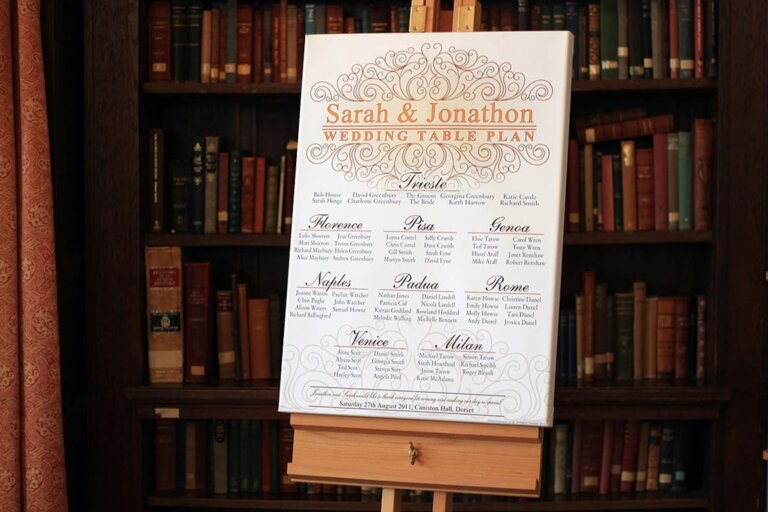 Sarah & Jonathon
WEDDING TABLE PLAN
Trieste
Bob House David Greenbury The Groom Georgina Greenbury Katie Castle
Sarah Hinge Charlotte Greenbury The Bride Kieth Harrow Richard Smith
Florence Pisa Genoa
Luke Shorton Jean Greenbury Lorna Cottel Sally Crumb Elsie Tarow Carol Wren
Matt Shorton Trevor Greenbury Chris Cottel Dave Crumb Ted Tarow Tony Wren
Richard Maybury Helen Greenbury Gill Smith Sarah Eyne Hazel Atall Janet Renshaw
Alice Maybury Andrew Greenbury Martyn Smith David Eyne Mike Atall Robert Renshaw
Naples Padua Rome
Joanne Waters Pauline Watcher Nathan Jones Daniel Landell Karen House Christine Dunel
Chris Pughe John Watcher Patricia Cid Nicola Landell Emily House Lauren Dunel
Alison Waters Samuel House Kieran Goddard Rowland Hoddard Molly House Tara Dunel
Richard Ballingford Melodie Walling Michelle Bennett Andy Dunel Jessica Dunel
Venice Milan
Anne Scot Daniel Smith Michael Tarow Simon Tarow
Alycia Scot Georgia Smith Sarah Heartland Richael
Ted Scot Steven Sitty Jaime Tarow Roger
Hayley Scot Angela Pool Katie McAdams
Jonathon and Sarah would like to thank everyone for coming and making our day so special!
Saturday 27th August 2011, Caniston Hall, Dorset